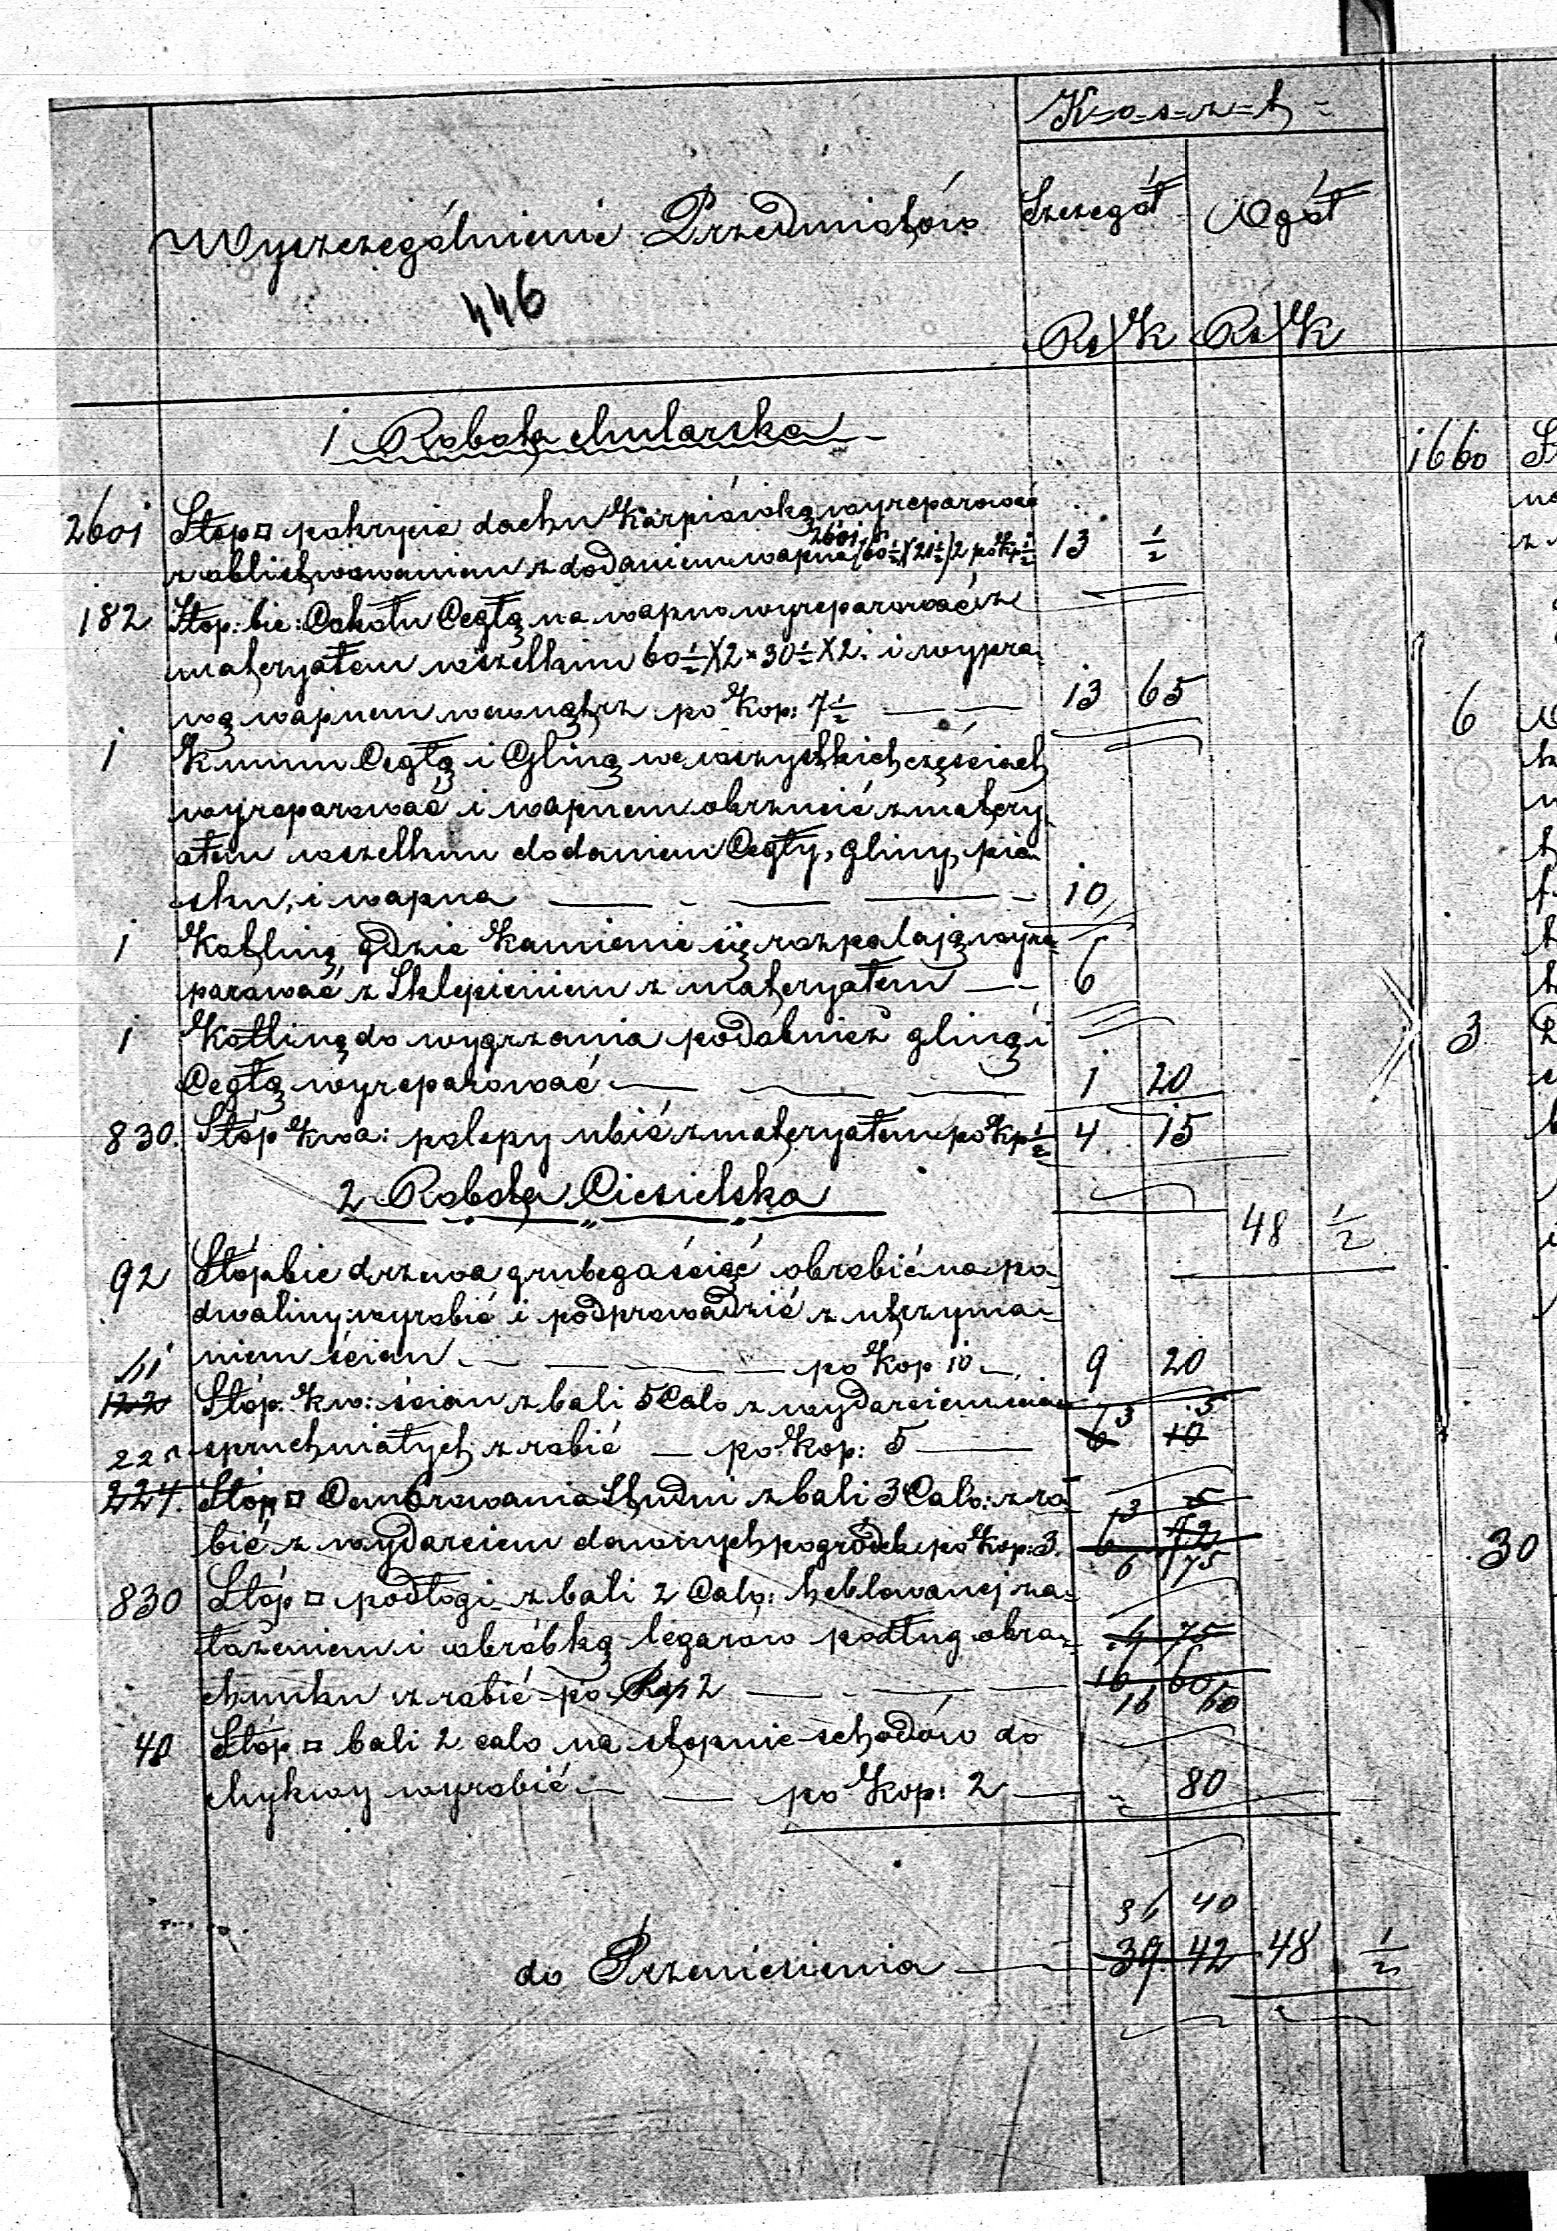 K=o=s=z=t=
Wyszczególnienie Przedmiotów
Szczegół
Ogół
446
Rs K Rs K
1 Robota Mularska
2601 Stop □ pokrycia dachu Karpiówką wyreparować
z oblistwowaniem z dodaniem wapna 60½ X 21½ X 2 po Kp ½ 13 ½
182 Stop: bie: Cokołu Cegłą na wapno wyreparować ze
materyałem wszelkim 60½ X 2 × 30½ X 2. i wypra-
wą wapnem wewnątrz po Kop: 7½ 13 65
1 Komin Cegłą i Gliną we wszystkich częściach
wyreparować i wapnem obrzucić z matery-
ałem wszelkim dodaniem Cegły, gliny, pia-
sku, i wapna 10
1 Kotlinę gdzie Kamienie się rozpalają wyre-
parować z Sklepieniem z materyałem 6
1 Kotlinę do wygrzania podobnież gliną i
Cegłą wyreparować 1 20
830. Stóp Kwa: polepy ubić z materyałem po Kp ½ 4 15
2 Robota Ciesielska
48 ½
92 Stóp bie drzewa grubego obrobić na po-
dwaliny: wyrobić i podprowadzić z utrzyma-
niem ścian po Kop 10 9 20
61
122 Stóp. Kw: ścian z bali 5 Calo z wydarciem
3 5
spruchniałych zrobić po Kop: 5 6 10
224. Stóp □ Cembrowania Studni z bali 3 Calo: zro-
bić z wydarciem dawnych pogródek po Kop: 3. 6 72
6 75
830 Stóp □ podłogi z bali 2 Calo: heblowanej za-
łożeniem i obróbką legarów podług obra-
chunku zrobić po Kop 2 16 60
16 60
40 Stóp □ bali 2 calo na stopnie schodów do
Mykwy wyrobić po Kop: 2 80
36 40
do Przeniesienia 39 42 48 ½
1660
6
3
30